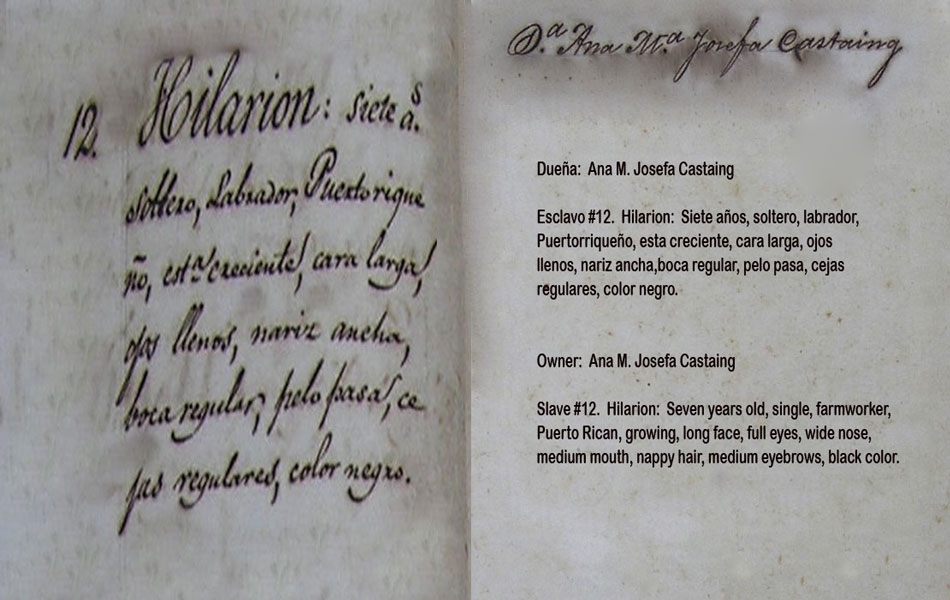 12. Hilarion: siete a.s
soltero, Labrador, Puertorique
ño, est.a creciente, cara larga,
ojos llenos, nariz ancha,
boca regular, pelo pasa, ce
jas regulares, color negro.
D.a Ana M.a Josefa Castaing
Dueña: Ana M. Josefa Castaing
Esclavo #12. Hilarion: Siete años, soltero, labrador,
Puertorriqueño, esta creciente, cara larga, ojos
llenos, nariz ancha,boca regular, pelo pasa, cejas
regulares, color negro.
Owner: Ana M. Josefa Castaing
Slave #12. Hilarion: Seven years old, single, farmworker,
Puerto Rican, growing, long face, full eyes, wide nose,
medium mouth, nappy hair, medium eyebrows, black color.